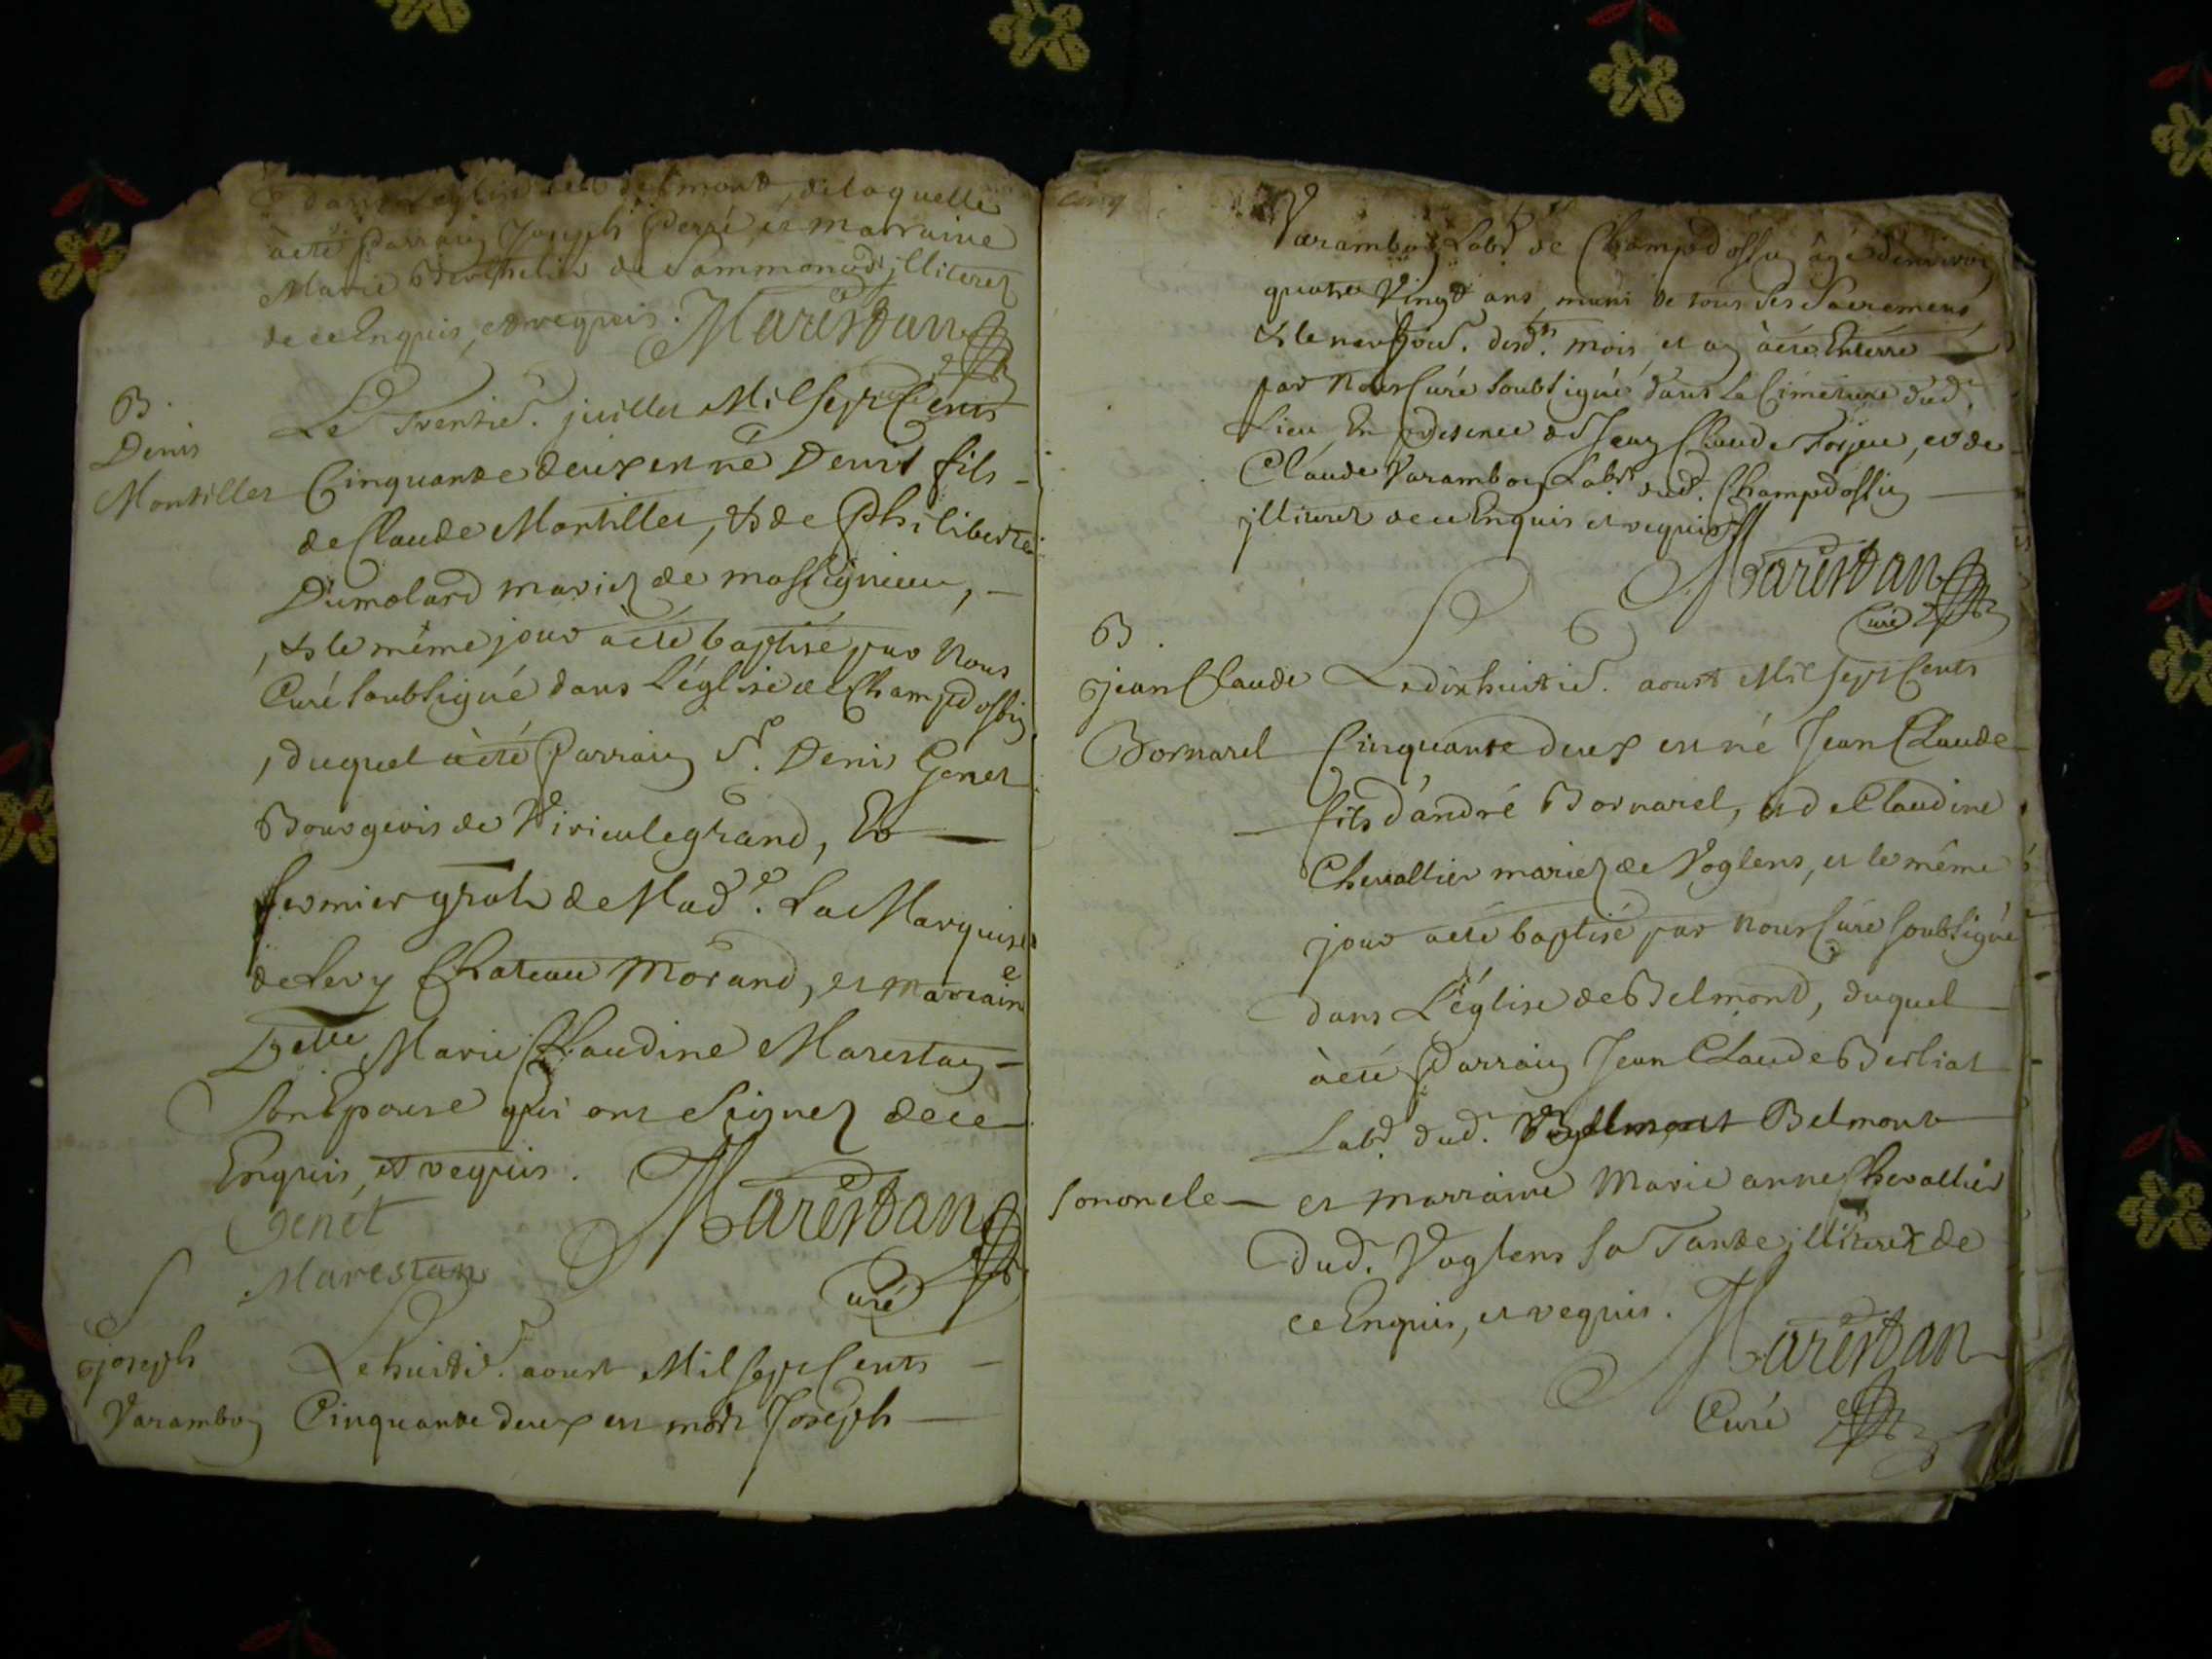 dans l'eglise de Belmont, de laquelle
à eté Parrain Joseph Perré et marraine
Marie Berthelier de Sammonod illiterez
de ce Enquis, et requis. Marestan
B.
Denis
Montillet
Le Trentie. juillet Mil sept Cents
Cinquante deux est né Denis fils
de Claude Montillet, & de Philiberte
Dumolard mariez de massignieu,
, & le même jour à eté baptisé par Nous
Curé soubsigné dans L'église de Champdossin
, duquel à eté Parrain Sr. Denis Genet
Bourgeois de Virieulegrand, Et
fermier gral de Made. La Marquise
de Levy Chateau Morand, et marraine
Dzelle Marie Claudine Marestan
son Epouse qui ont signez de ce
Enquis, et requis.
Genet
Marestan
Marestan
Curé
S
joseph
Varamboz
Le huitie. aoust Mil sept Cents
Cinquante deux est mort Joseph
cinq
Varamboz Labr de Champdossin âgé d'environ
quatre Vingt ans, muni de tous ses Sacremens
& le neufvie. dusd. mois et an à eté Enterré
par Nous Curé soubsigné dans Le Cimetiere dud.
Lieu En presence de Jean Claude Forjeu, et de
Claude Varamboz Labrs dud. Champdossin
illiterez de ce Enquis et requis
Marestan
Curé
B.
jean Claude
Bornarel
Le dixhuitie. aoust Mil sept Cents
Cinquante deux est né Jean Claude
fils d'andré Bornarel, et de Claudine
Chevallier mariez de Voglens, et le même
jour à eté baptisé par nous Curé soubsigné
dans L'église de Belmont, duquel
à eté Parrain Jean Claude Berliat
Labr dud. Belmont
son oncle
et marraine Marie anne Chevallier
dud. Voglens sa Tante illiterez de
ce Enquis, et requis.
Marestan
Curé